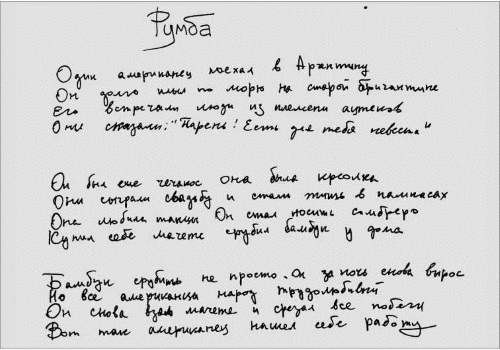 Румба
Один американец поехал в Аргентину
Он долго плыл по морю на старой бригантине
Его встречали люди из племени ацтеков
Они сказали: "Парень! Есть для тебя невеста"
Он был еще чечако она была креолка
Они сыграли свадьбу и стали жить в пампасах
Она любила танцы Он стал носить сомбреро
Купил себе мачете срубил бамбук у дома
Бамбук срубить не просто. Он за ночь снова вырос
Но все американцы народ трудолюбивый
Он снова взял мачете и срезал все побеги
Вот так американец нашел себе работу